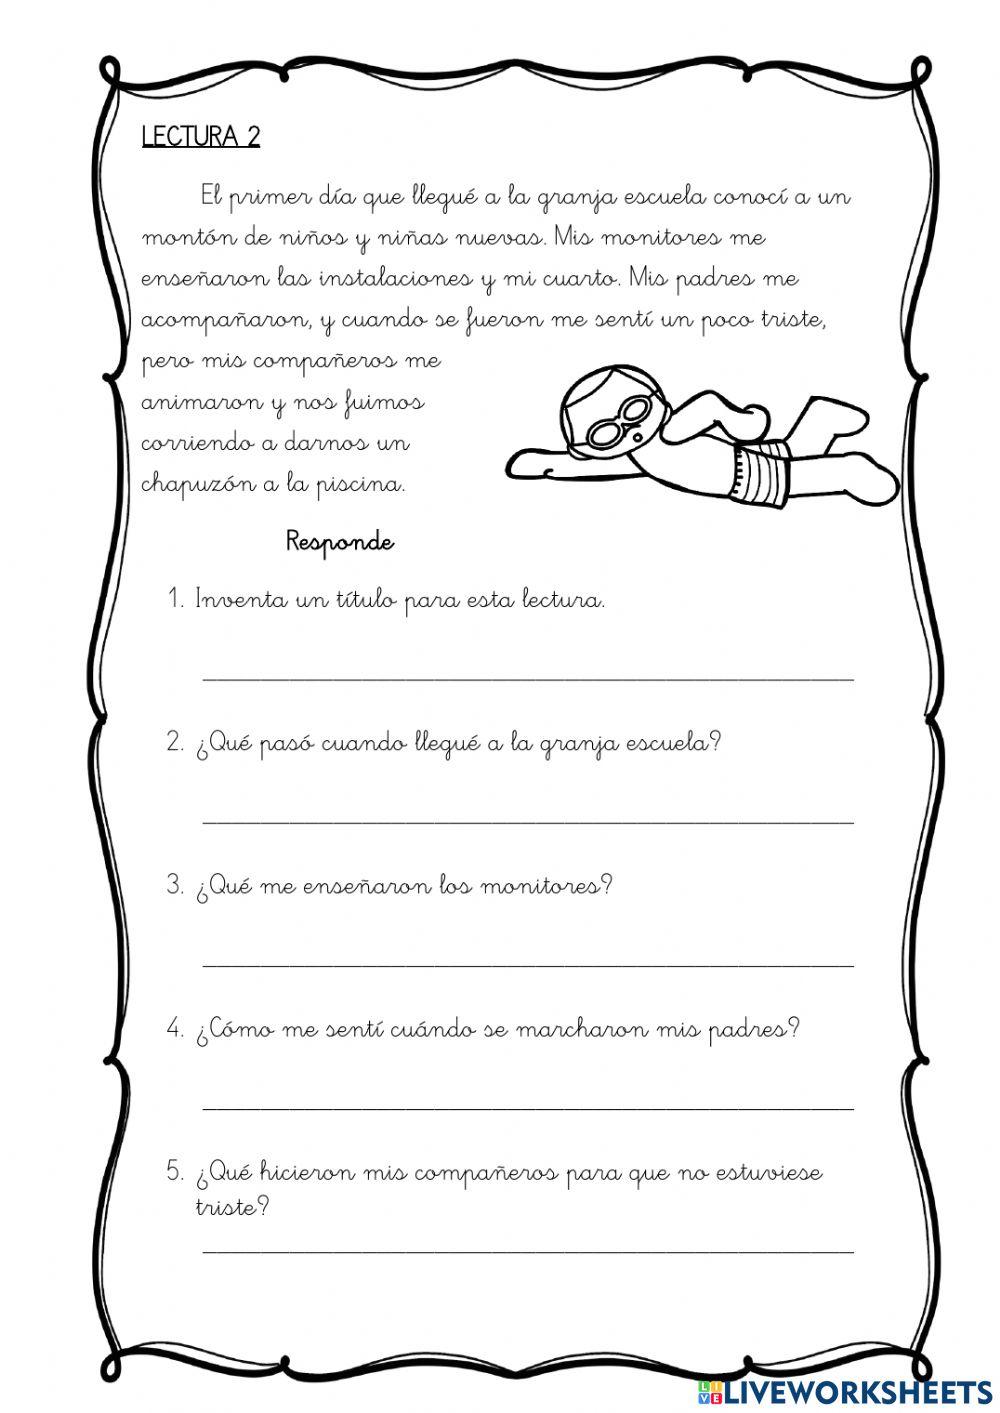 LECTURA 2
El primer día que llegué a la granja escuela conocí a un
montón de niños y niñas nuevas. Mis monitores me
enseñaron las instalaciones y mi cuarto. Mis padres me
acompañaron, y cuando se fueron me sentí un poco triste,
pero mis compañeros me
animaron y nos fuimos
corriendo a darnos un
chapuzón a la piscina.
Responde
1. Inventa un título para esta lectura.
2. ¿Qué pasó cuando llegué a la granja escuela?
3. ¿Qué me enseñaron los monitores?
4. ¿Cómo me sentí cuándo se marcharon mis padres?
5. ¿Qué hicieron mis compañeros para que no estuviese
triste?
LIVE LIVEWORKSHEETS